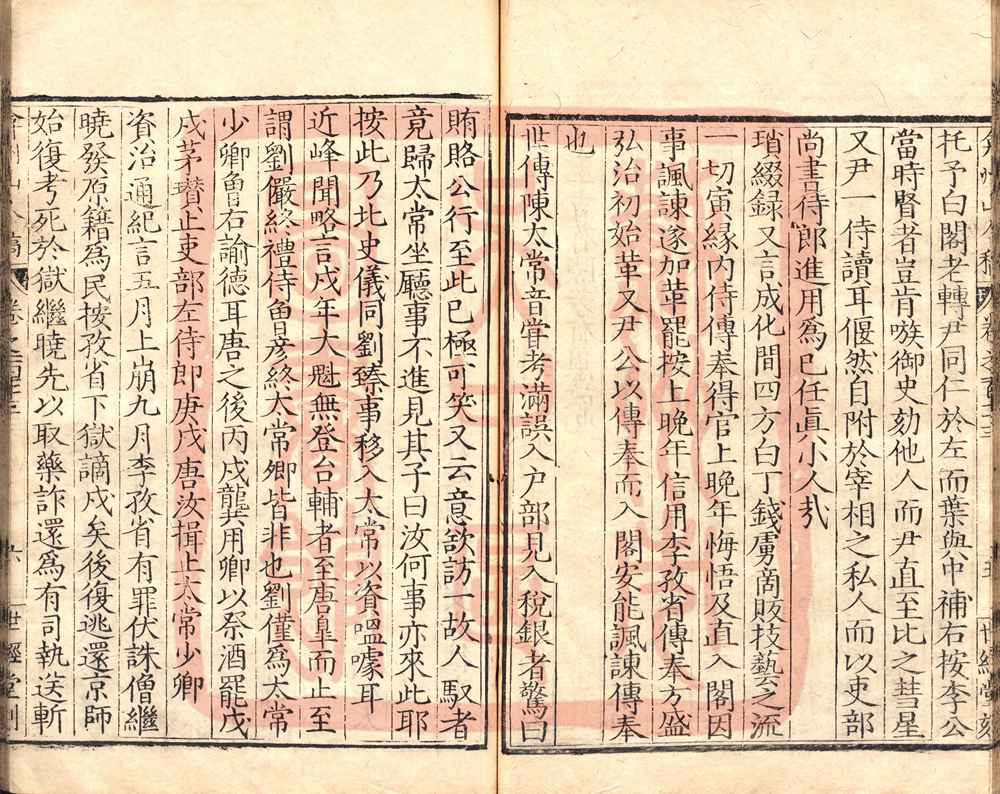 弇州山人稿 卷之一百
托予白閣老轉尹同仁於左而葉與中補右按李公
當時賢者豈肯嗾御史劾他人而尹直至比之彗星
又尹一侍讀耳偃然自附於宰相之私人而以吏部
尚書侍郎進用爲已任眞小人㢤
瑣綴録又言成化間四方白丁錢虜商販技藝之流
一切寅縁内侍傳奉得官上晚年悔悟及直入閣因
事諷諫遂加革罷按上晚年信用李孜省傳奉方盛
弘治初始革又尹公以傳奉而入閣安能諷諫傳奉
也
世傳陳太常音嘗考滿誤入户部見入稅銀者驚曰
賄賂公行至此已極可笑又云意欲訪一故人馭者
竟歸太常坐廳事不進見其子曰汝何事亦來此耶
按此乃北史儀同劉臻事移入太常以資嗢噱耳
近峰聞略言戌年大魁無登台輔者至唐皐而止至
謂劉儼終禮侍魯彦終太常卿皆非也劉僅爲太常
少卿魯右諭德耳唐之後丙戌龔用卿以祭酒罷戊
戌茅瓚止吏部左侍郎庚戌唐汝揖止太常少卿
資治通紀言五月上崩九月李孜省有罪伏誅僧繼
曉發原籍爲民按孜省下獄謫戍矣後復逃還京師
始復考死於獄繼曉先以取藥詐還爲有司執送斬
卷之一百 六 世經堂刻